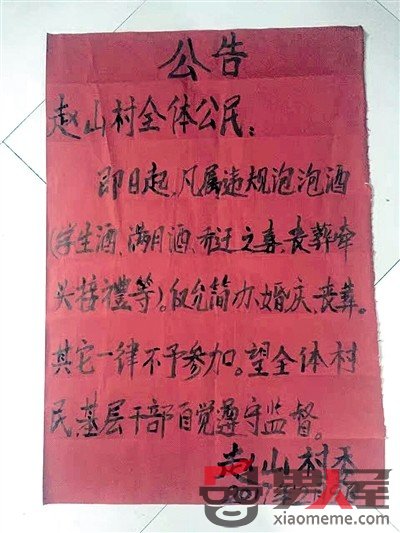 公告
赵山村全体公民：
即日起，凡属违规泡泡酒
(学生酒、满月酒、乔迁之喜、丧葬牵
头接禮等)。仅允简办、婚庆、丧葬。
其它一律不予参加。望全体村
民基层干部自觉遵守监督。
赵山村委
男人屋
xiaomeme.com